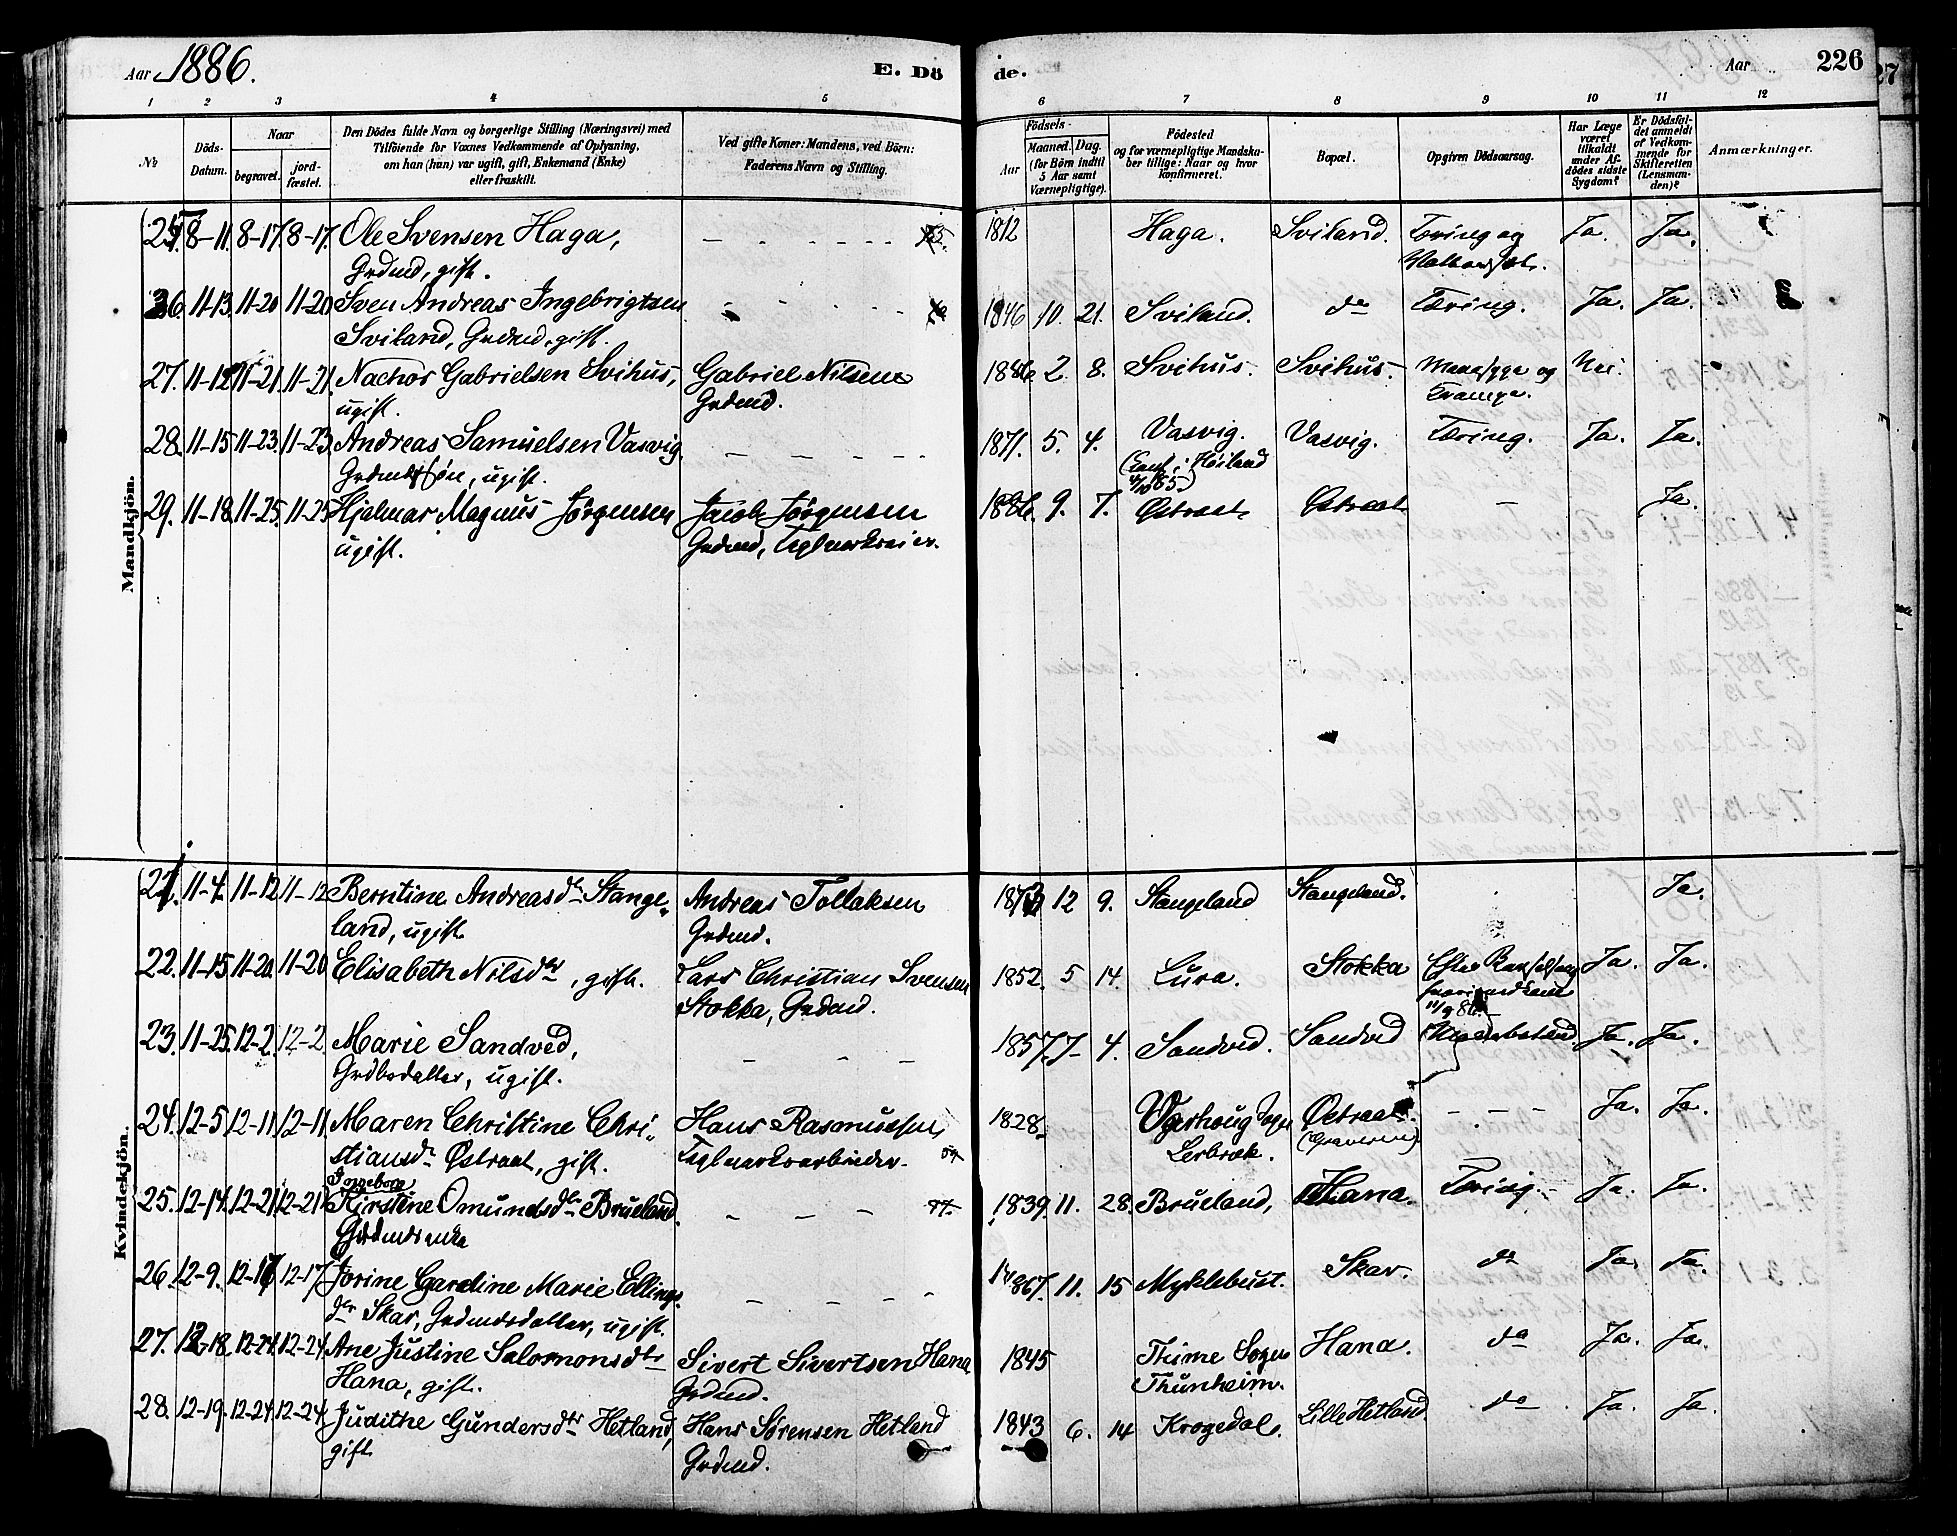 Aar 1886. E. Dö de. Aar 226
1 2 3 4 5 6 7 8 9 10 11 12
№ Döds-Datum. Naar begravet. jordfæstet.
Den Dödes fulde Navn og borgerlige Stilling (Næringsvei) med
Tilföiende for Voxnes Vedkommende af Oplysning,
om han (hun) var ugift, gift, Enkemand (Enke)
eller fraskilt.
Ved gifte Koner: Mandens, ved Börn:
Faderens Navn og Stilling.
Födsels-
Aar Maaned. Dag.
(for Börn indtil
5 Aar samt
Værnepligtige).
Födested
og for værnepligtige Mandska-
ber tillige: Naar og hvor
konfirmeret.
Bopæl.
Opgiven Dödsaarsag.
Har Læge
været
tilkaldt
under Af-
dödes sidste
Sygdom?
Er Dödsfal-
det anmeldt
af Vedkom-
mende for
Skifteretten
(Lensman-
den)?
Anmærkninger.
Mandkjön.
25. 8-11. 8-17. 8-17. Ole Svensen Haga, 1812 Haga. Sviland. Tæring og Ja. Ja.
Grdmd, gift.
26. 11-13. 11-20 11-20 Sven Andreas Ingebrigtsen 1846 10. 21. Sviland. do Tæring. Ja. Ja.
Sviland, Grdmd, gift.
27. 11-12 11-21. 11-21. Nachor Gabrielsen Svihus, Gabriel Nilsen 1886 2. 8. Svihus. Svihus. og Nei.
ugift. Grdmd. Krampe.
28. 11-15 11-23. 11-23. Andreas Samuelsen Vasvig. 1871. 5. 4. Vasvig. Vasvig. Tæring. Ja. Ja.
Grdmdssøn, ugift. (Conf. i Høiland
4/10 85)
29. 11-18. 11-25. 11-25 Hjalmar Magnus Jørgensen Jacob Jørgensen 1886. 9. 7. Østraat. Østraat - Ja.
ugift. Grdmd, Teglværkseier.
Kvindekjön.
21. 11-4. 11-12 11-12 Berntine Andreasdtr Stange- Andreas Tollaksen 1873 12 9. Stangeland Stangeland. Ja.
land, ugift Grdmd.
22. 11-15. 11-20. 11-20 Elisabeth Nilsdtr, gift. Lars Christian Svensen 1852. 5 14. Lura. Stokka Ja. Ja.
Stokka, Grdmd. 11/9 86.
23. 11-25. 12-2. 12-2 Marie Sandved, 1857. 7- 4. Sandved. Sandved Ja. Ja.
Grdbrdatter, ugift.
24. 12-5 12-11 12-11 Maren Christine Chri- Hans Rasmussen, 1828. Varhoug Sogn Østraat. - - - Ja. Ja.
stiansdr Østraat, gift. Teglværksarbeider. Lerbræk. (Graveren)
Ingeborg
25. 12-14. 12-21 12-21 Kirstine Omundsdtr Brueland. 1839. 11. 28. Brueland, Hana. Tæring. Ja. Ja.
Grdmdsenke
26. 12-9. 12-17 12-17 Jorine Gardine Marie Ellings- 1867. 11. 15 Myklebust. Skar. do Ja. Ja.
dtr Skar, Grdmdsdatter, ugift.
27. 12-18. 12-24. 12-24. Ane Justine Salomonsdtr Sivert Sivertsen Hana 1845 Thime Sogn Hana. do Ja. Ja.
Hana, gift. Grdmd. Thunheim.
28. 12-19. 12-24. 12-24 Judithe Gundersdtr Hetland, Hans Sørensen Hetland 1843 6. 14 Krogedal. Lille Hetland do Ja. Ja.
gift Grdmd.